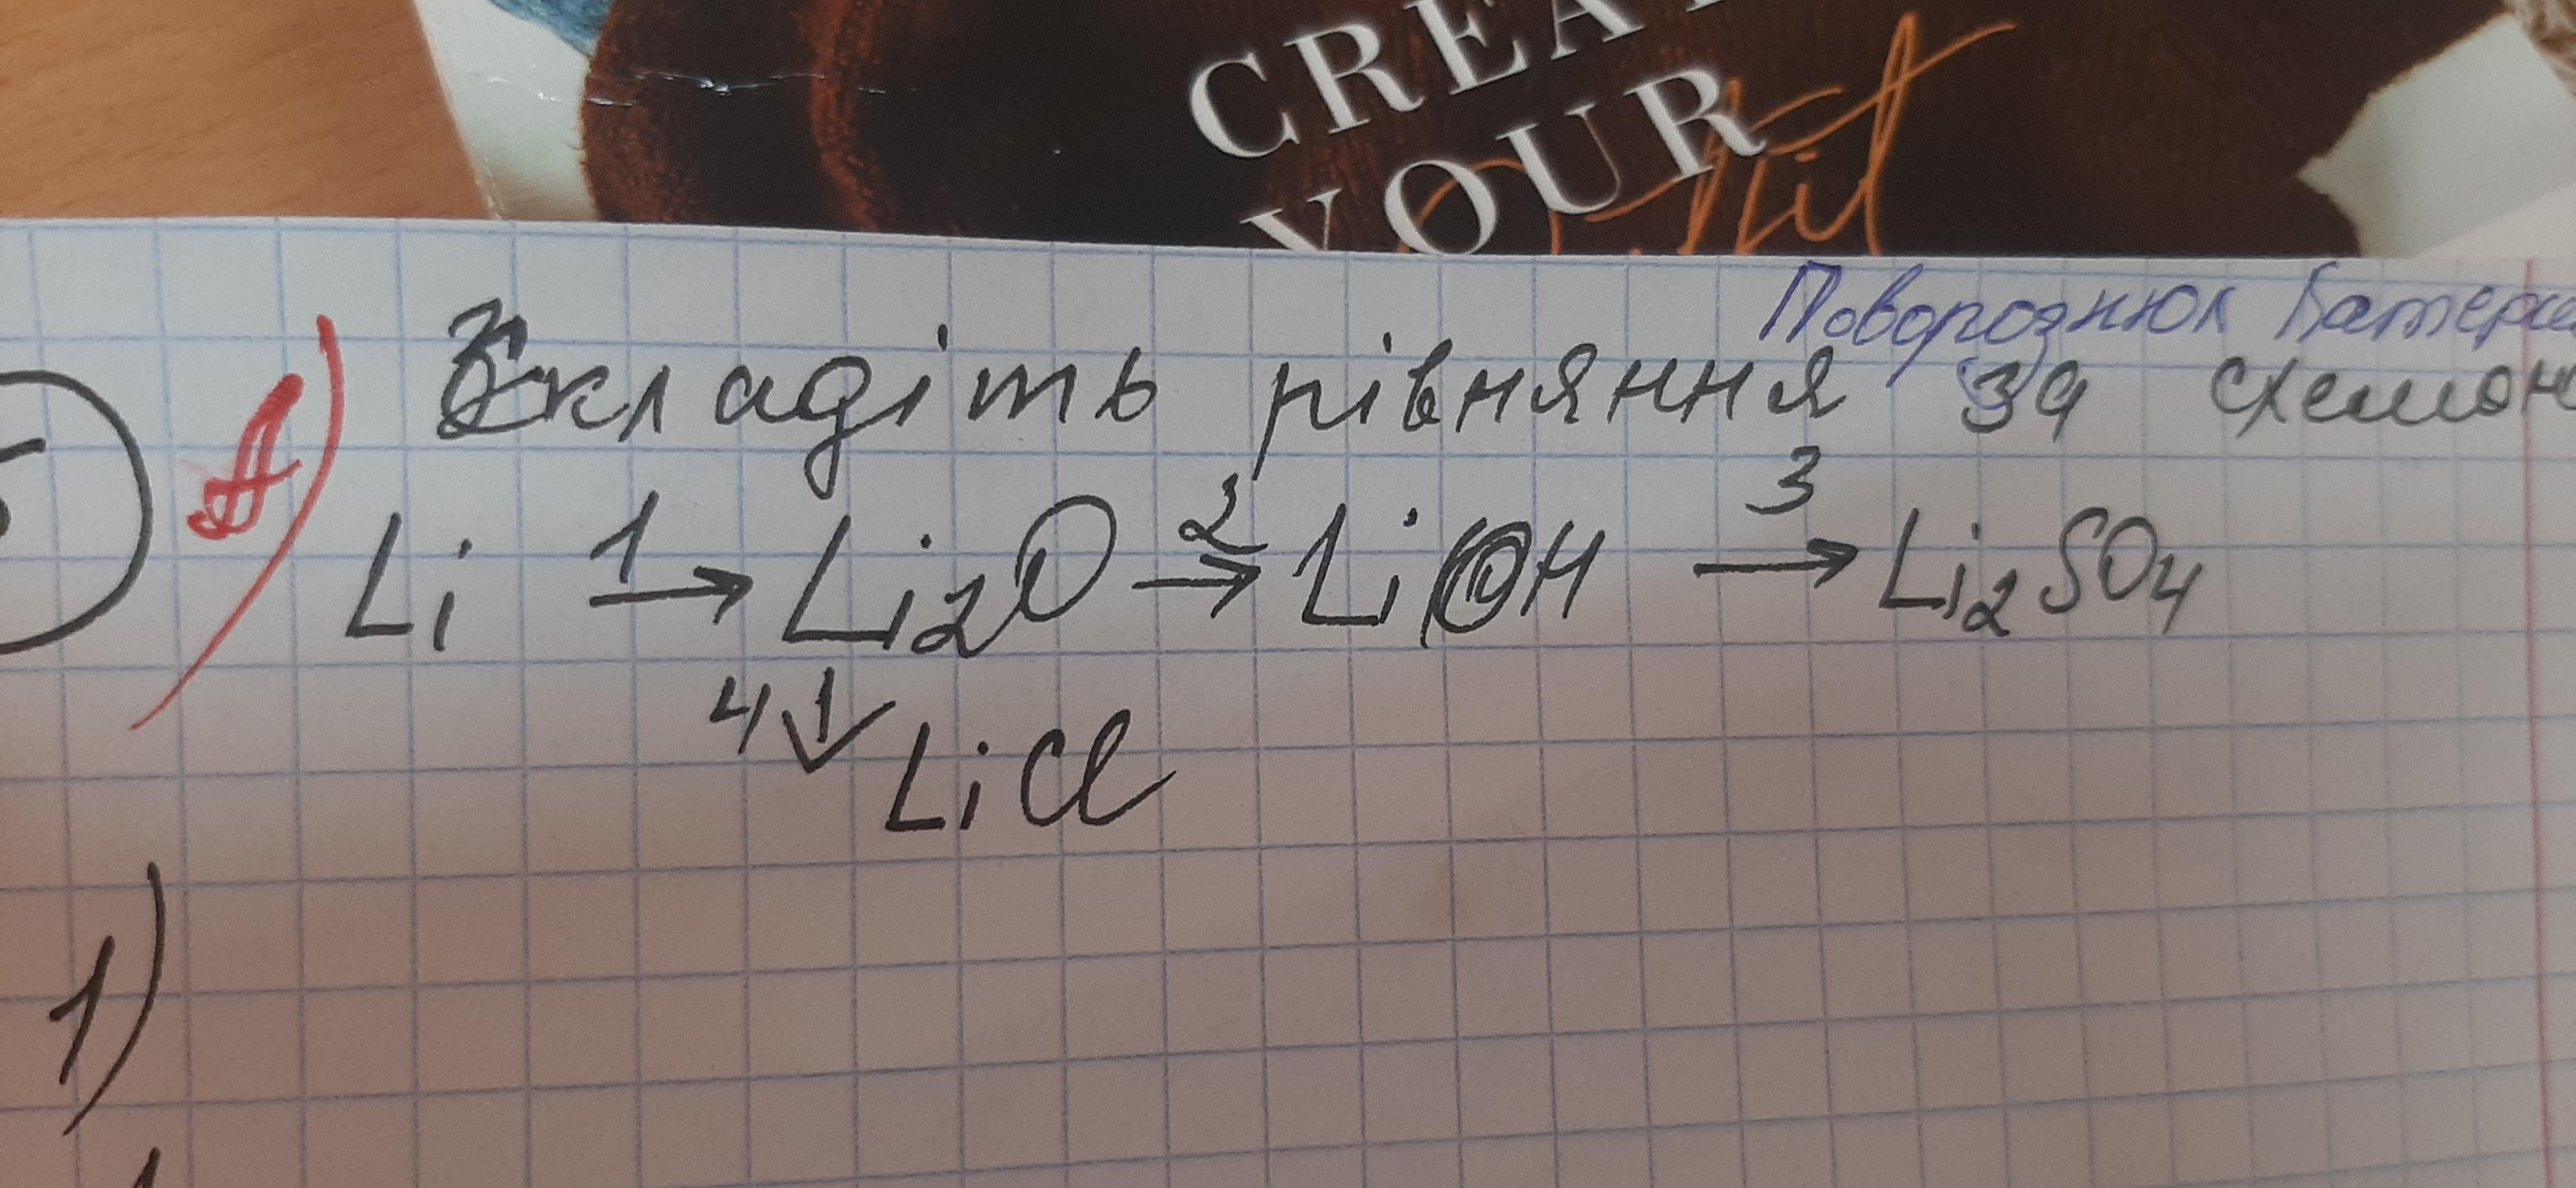 CREAT
YOUR
Поворознюк Катери
5 A) Складіть рівняння за схемою
Li 1→ Li₂O 2→ LiOH 3→ Li₂SO₄
4↓ LiCl
1)